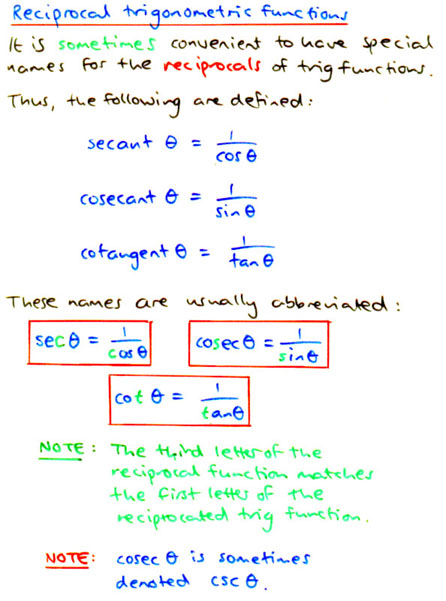 Reciprocal trigonometric functions
It is sometimes convenient to have special
names for the reciprocals of trig functions.
Thus, the following are defined:
secant θ = 1/cos θ
cosecant θ = 1/sin θ
cotangent θ = 1/tan θ
These names are usually abbreviated:
sec θ = 1/cos θ cosec θ = 1/sin θ
cot θ = 1/tan θ
NOTE: The third letter of the
reciprocal function matches
the first letter of the
reciprocated trig function.
NOTE: cosec θ is sometimes
denoted csc θ.